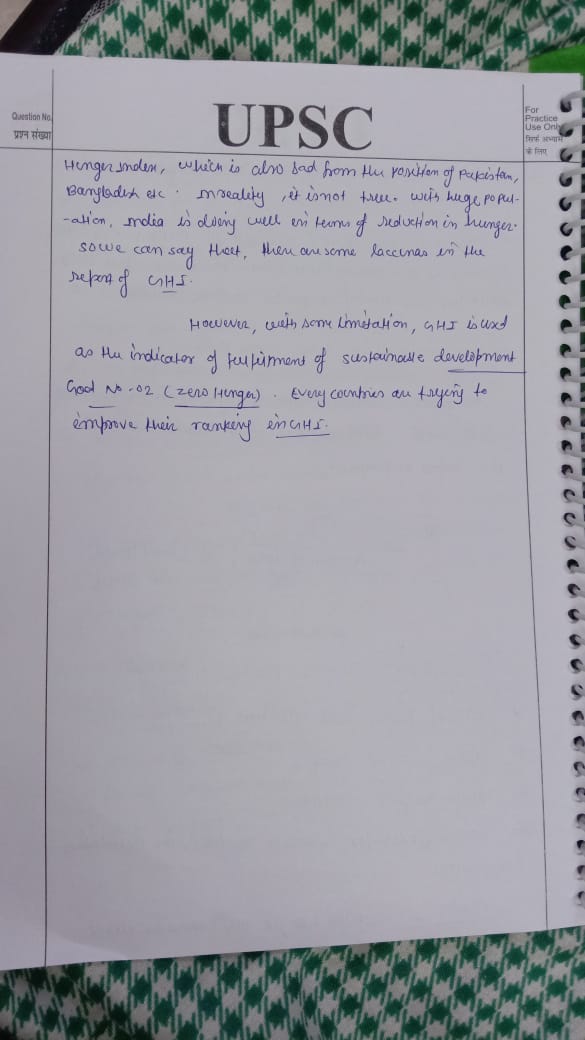 Question No.
प्रश्न संख्या
UPSC
For
Practice
Use Only
सिर्फ अभ्यास
के लिए
Hunger Index, which is also bad from the position of Pakistan,
Bangladesh etc. In reality, it is not true. with huge popul-
-ation, India is doing well in terms of reduction in hunger.
so we can say that, there are some laccunas in the
report of GHI.
However, with some limitation, GHI is used
as the indicator of fulfirment of sustainable development
Goal No-02 (zero Hunger). Every countries are trying to
improve their ranking in GHI.